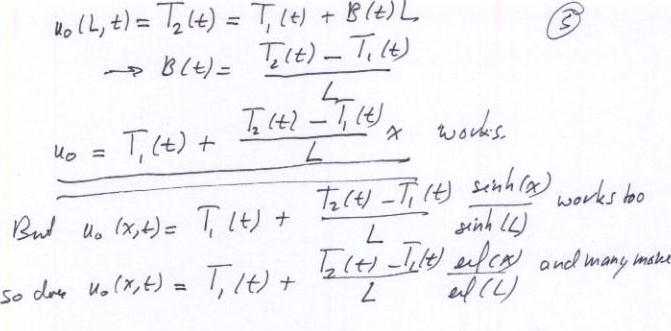 u₀(L,t) = T₂(t) = T₁(t) + B(t)L ⑤
→ B(t) = (T₂(t) − T₁(t)) / L
u₀ = T₁(t) + (T₂(t) − T₁(t)) / L x works.
But u₀(x,t) = T₁(t) + (T₂(t) − T₁(t)) / L sinh(x) / sinh(L) works too
so does u₀(x,t) = T₁(t) + (T₂(t) − T₁(t)) / L erf(x) / erf(L) and many more